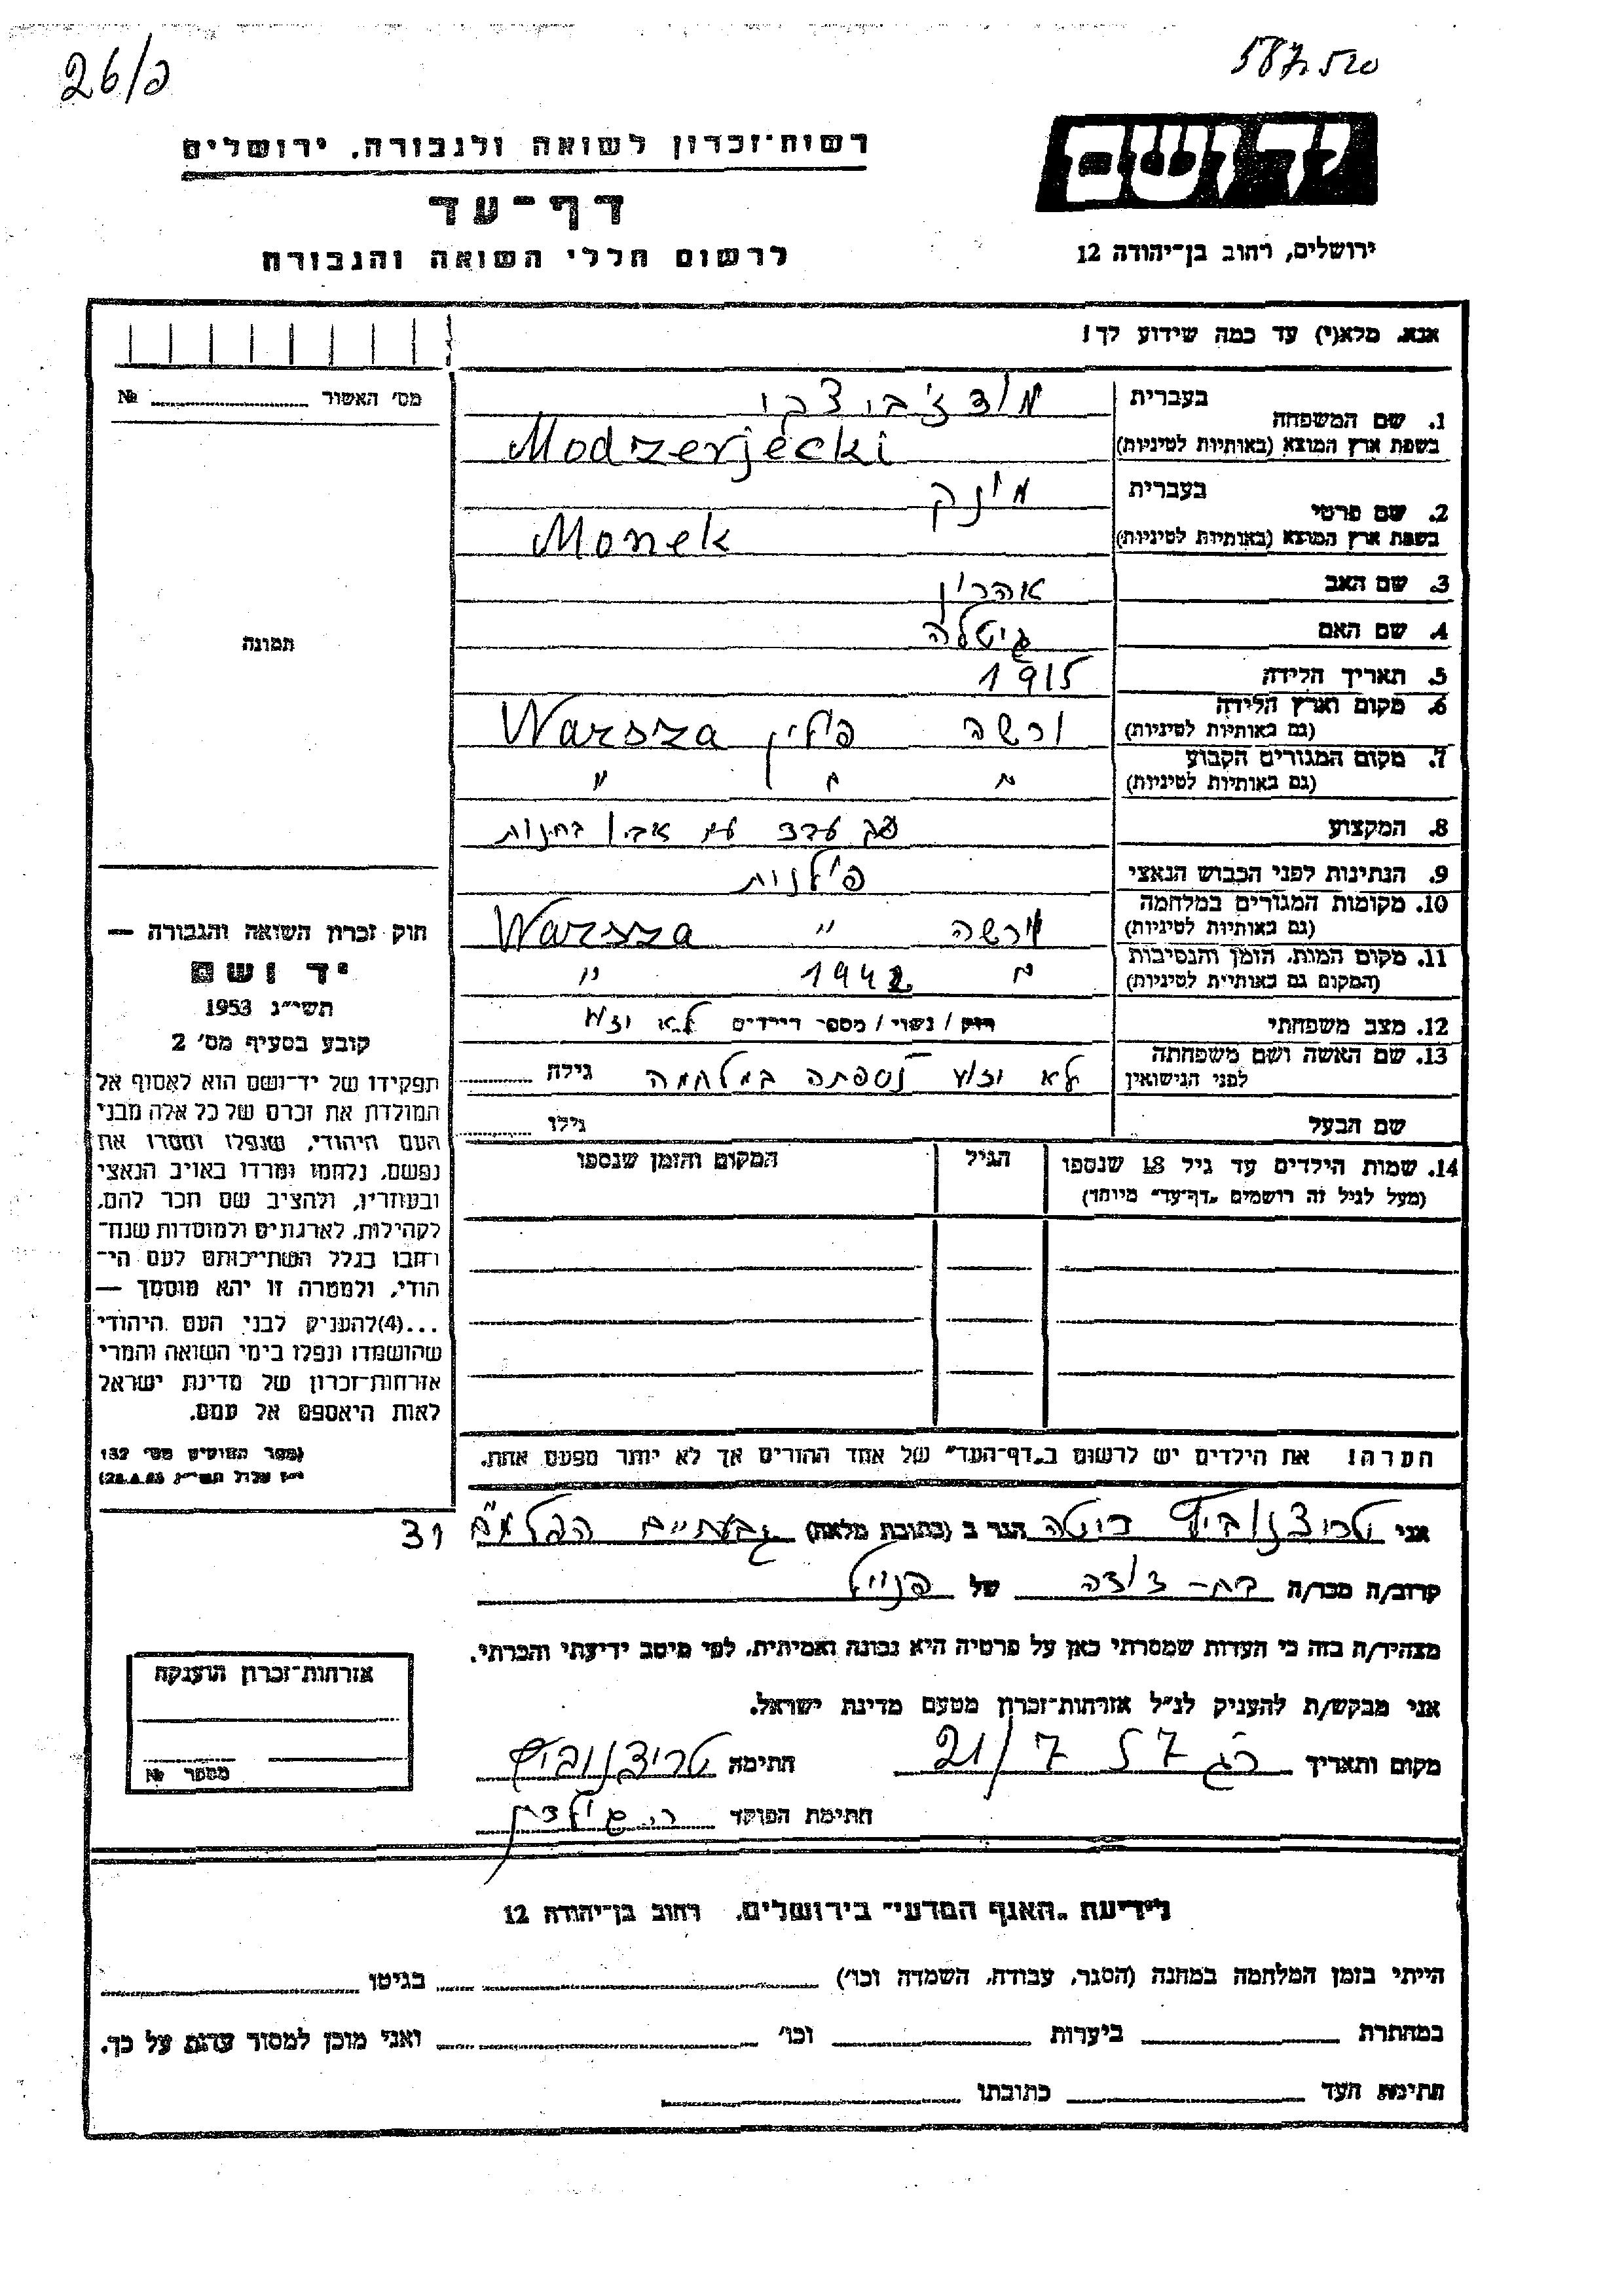 26/כ
587520
יד ושם
רשות-זכרון לשואה ולגבורה, ירושלים
דף-עד
לרשום חללי השואה והגבורה
ירושלים, רחוב בן-יהודה 12
אנא, מלא(י) עד כמה שידוע לך!
מס' האשור № 
בעברית
1. שם המשפחה
בשפת ארץ המוצא (באותיות לטיניות) Modzerjecki
בעברית מונק
2. שם פרטי
בשפת ארץ המוצא (באותיות לטיניות) Monek
3. שם האב אהרון
4. שם האם גיטלה
5. תאריך הלידה 1915
6. מקום וארץ הלידה ורשה פולין Warsza
(גם באותיות לטיניות)
7. מקום המגורים הקבוע " " "
(גם באותיות לטיניות)
8. המקצוע עבד עם אביו בחנות
9. הנתינות לפני הכבוש הנאצי פולנית
10. מקומות המגורים במלחמה ורשה " Warsza
(גם באותיות לטיניות)
11. מקום המות, הזמן והנסיבות " 1942 "
(המקום גם באותיות לטיניות)
12. מצב משפחתי רווק / נשוי / מספר הילדים לא ידוע
13. שם האשה ושם משפחתה
לפני הנישואין לא ידוע נספתה במלחמה גילה
שם הבעל גילו
14. שמות הילדים עד גיל 18 שנספו
(מעל לגיל זה רושמים "דף-עד" מיוחד)
הגיל
המקום והזמן שנספו
הערה! את הילדים יש לרשום ב"דף-העד" של אחד ההורים אך לא יותר מפעם אחת.
תמונה
חוק זכרון השואה והגבורה —
יד ושם
תשי"ג 1953
קובע בסעיף מס' 2
תפקידו של יד-ושם הוא לאסוף אל
המולדת את זכרם של כל אלה מבני
העם היהודי, שנפלו ומסרו את
נפשם, נלחמו ומרדו באויב הנאצי
ובעוזריו, ולהציב שם וזכר להם,
לקהילות, לארגונים ולמוסדות שנח-
רבו בגלל השתייכותם לעם הי-
הודי, ולמטרה זו יהא מוסמך —
...(4)להעניק לבני העם היהודי
שהושמדו ונפלו בימי השואה והמרי
אזרחות-זכרון של מדינת ישראל
לאות היאספם אל עמם.
(ספר החוקים מס' 132
י"ז אלול תשי"ג (28.8.53
אני הגר ב (כתובת מלאה) גבעתיים 31
קרוב/ה מכר/ה בת-דודה של
מצהיר/ה בזה כי העדות שמסרתי כאן על פרטיה היא נכונה ואמיתית, לפי מיטב ידיעתי והכרתי.
אני מבקש/ת להעניק לנ"ל אזרחות-זכרון מטעם מדינת ישראל.
מקום ותאריך רג 21/7 57 חתימה
חתימת הפוקד
אזרחות-זכרון הוענקה
מספר №
לידיעת "האגף המדעי" בירושלים, רחוב בן-יהודה 12
הייתי בזמן המלחמה במחנה (הסגר, עבודה, השמדה וכו') בגיטו
במחתרת ביערות וכו' ואני מוכן למסור עדות על כך.
חתימת העד כתובתו